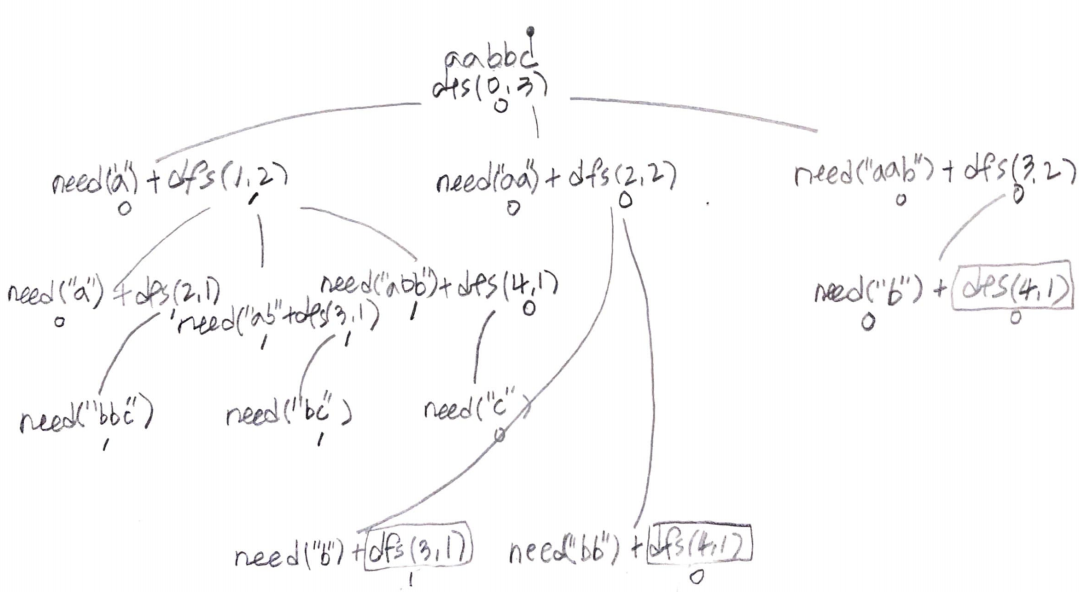 aabbc
dfs(0,3)
0
need("a") + dfs(1,2)
0 1
need("aa") + dfs(2,2)
0 0
need("aab") + dfs(3,2)
0 0
need("a") + dfs(2,1)
0 1
need("ab"+dfs(3,1)
1 1
need("abb") + dfs(4,1)
1 0
need("b") + dfs(4,1)
0 0
need("bbc")
1
need("bc")
1
need("c")
0
need("b") + dfs(3,1)
1
need"bb") + dfs(4,1)
0